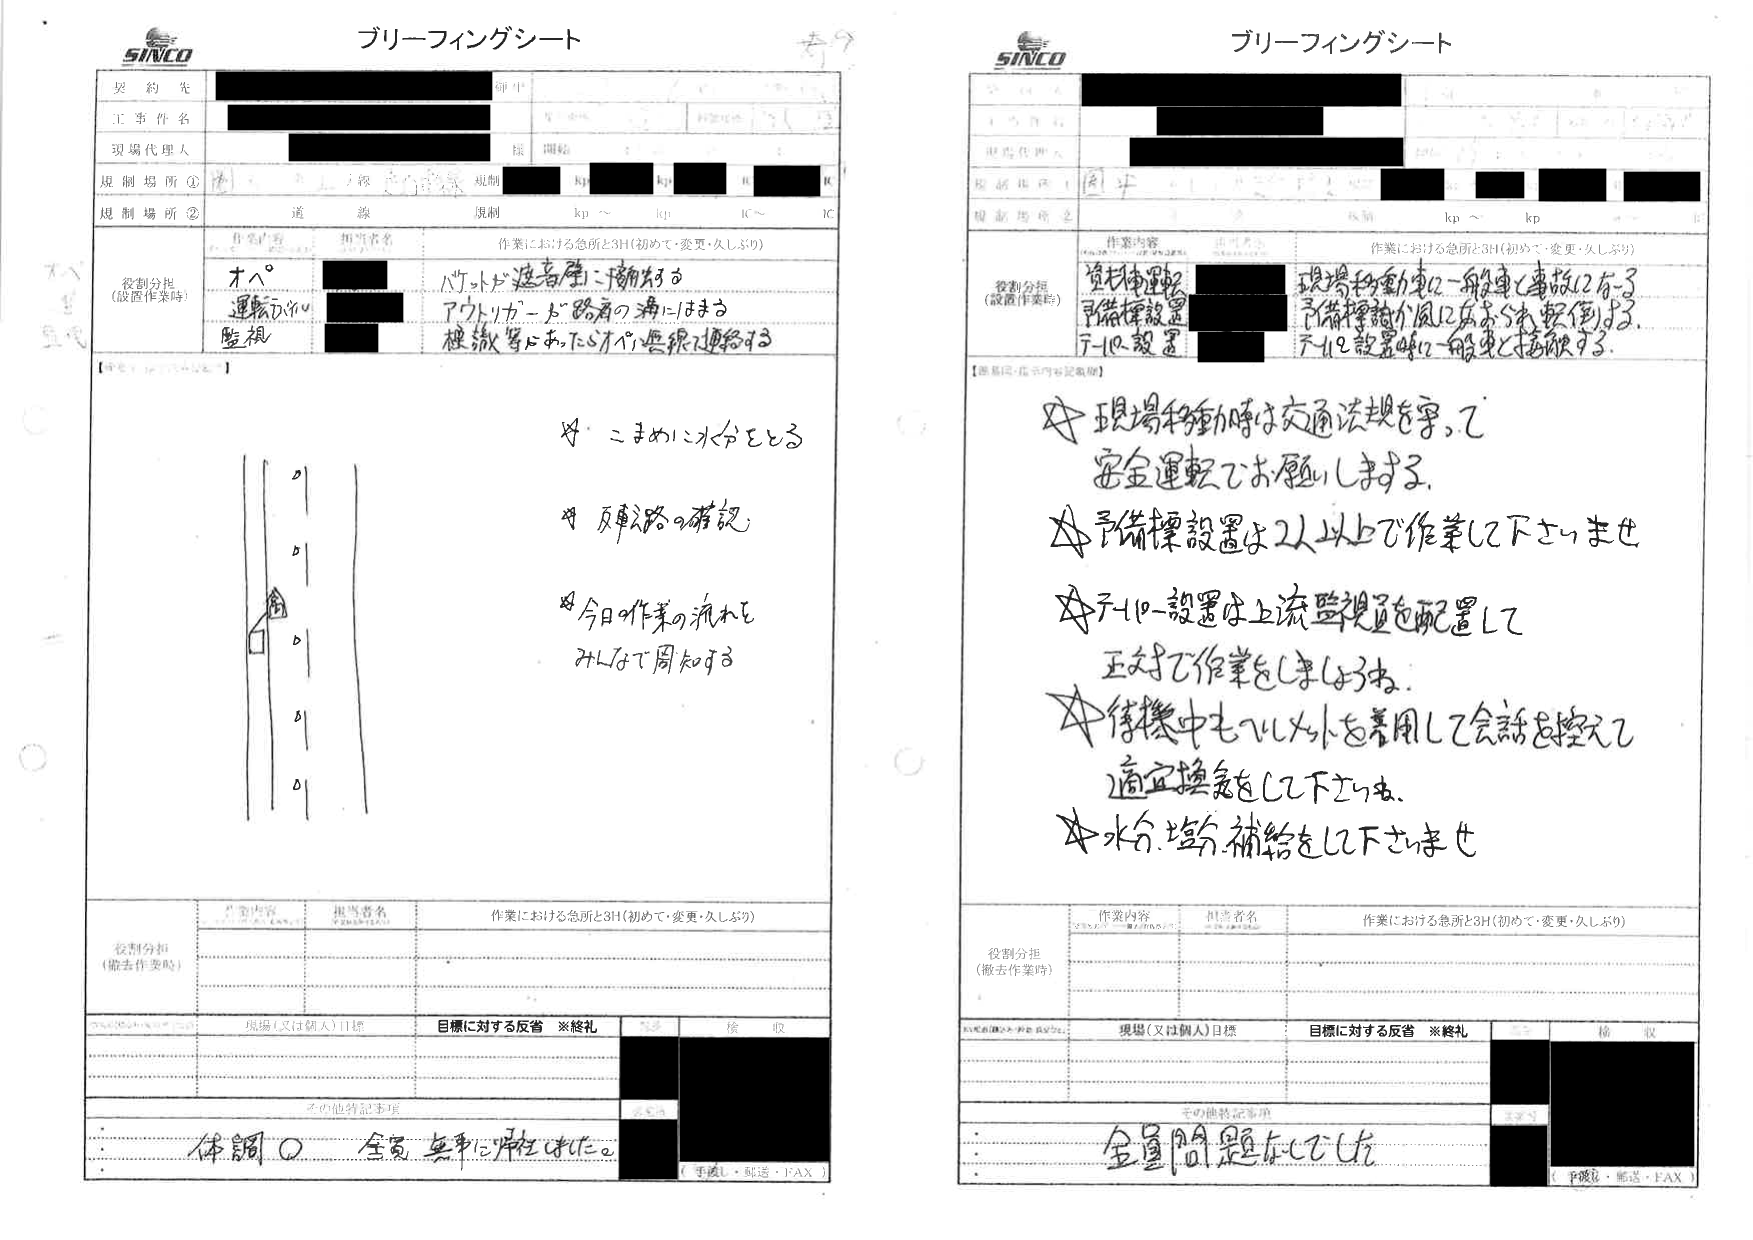 SINCO
ブリーフィングシート
契約先
御中
工事件名
現場代理人
様
開始
規制場所①
線
規制
kp
kp
IC
規制場所②
道
線
規制
kp ～
kp
IC～
IC
役割分担
(設置作業時)
作業内容
担当者名
作業における急所と3H(初めて・変更・久しぶり)
オペ
バケットが遮音壁に接触する
運転
アウトリガーが路肩の溝にはまる
監視
標識等があったらオペに無線で連絡する
☆ こまめに水分をとる
☆ 反転路の確認
☆ 今日の作業の流れを
みんなで周知する
役割分担
(撤去作業時)
作業内容
担当者名
作業における急所と3H(初めて・変更・久しぶり)
現場(又は個人)目標
目標に対する反省 ※終礼
検 収
その他特記事項
体調〇 全員 無事に帰社しました。
(手渡し・郵送・FAX)
SINCO
ブリーフィングシート
規制場所②
kp ～
kp
役割分担
(設置作業時)
作業内容
作業における急所と3H(初めて・変更・久しぶり)
資材車運転
現場移動中に一般車と事故になる
予備標設置
予備標識が風にあおられ転倒する。
テーパー設置
テーパー設置時に一般車と接触する。
☆現場移動時は交通法規を守って
安全運転でお願いしまする。
☆予備標設置は2人以上で作業して下さいませ
☆テーパー設置は上流監視員を配置して
正対で作業をしましょうね。
☆待機中もヘルメットを着用して会話を控えて
適宜換気をして下さいね。
☆水分、塩分、補給をして下さいませ
役割分担
(撤去作業時)
作業内容
担当者名
作業における急所と3H(初めて・変更・久しぶり)
現場(又は個人)目標
目標に対する反省 ※終礼
検 収
その他特記事項
全員問題なしでした
(手渡し・郵送・FAX)